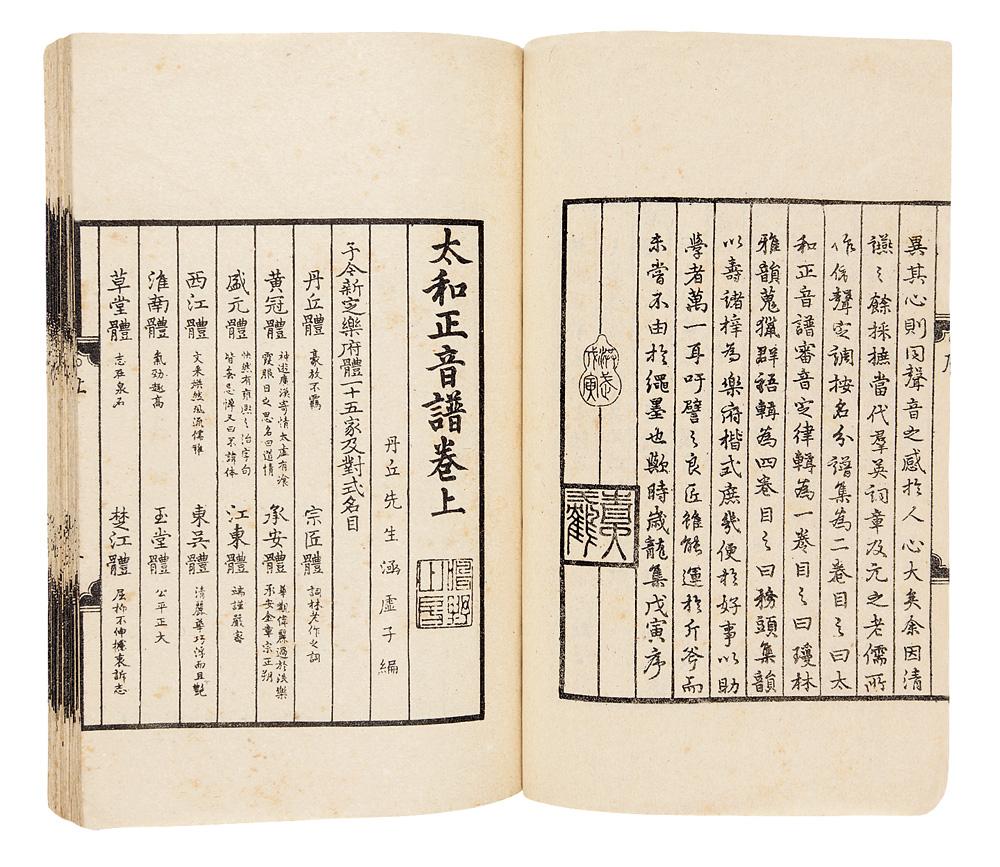 異其心則同聲音之感於人心大矣余因清
讌之餘採摭當代羣英詞章及元之老儒所
作依聲定調按名分譜集為二卷目之曰太
和正音譜審音定律輯為一卷目之曰瓊林
雅韻蒐獵群語輯為四卷目之曰務頭集韻
以壽諸梓為樂府楷式庶幾便於好事以助
學者萬一耳吁譬之良匠雖能運於斤斧而
未嘗不由於繩墨也歟時歲龍集戊寅序
洪武戊寅
太和正音譜卷上
丹丘先生涵虛子編
予今新定樂府體一十五家及對式名目
丹丘體 豪放不羈 宗匠體 詞林老作之詞
黃冠體 神遊廣漠寄情太虛有飡霞服日之思名曰道情 承安體 華觀偉麗過於泆樂承安金章宗正朔
盛元體 快然有雍熙之治字句皆無忌憚又曰不諱體 江東體 端謹嚴密
西江體 文采煥然風流儒雅 東吳體 清麗華巧浮而且艷
淮南體 氣勁趣高 玉堂體 公平正大
草堂體 志在泉石 楚江體 屈抑不伸攄衷訴志